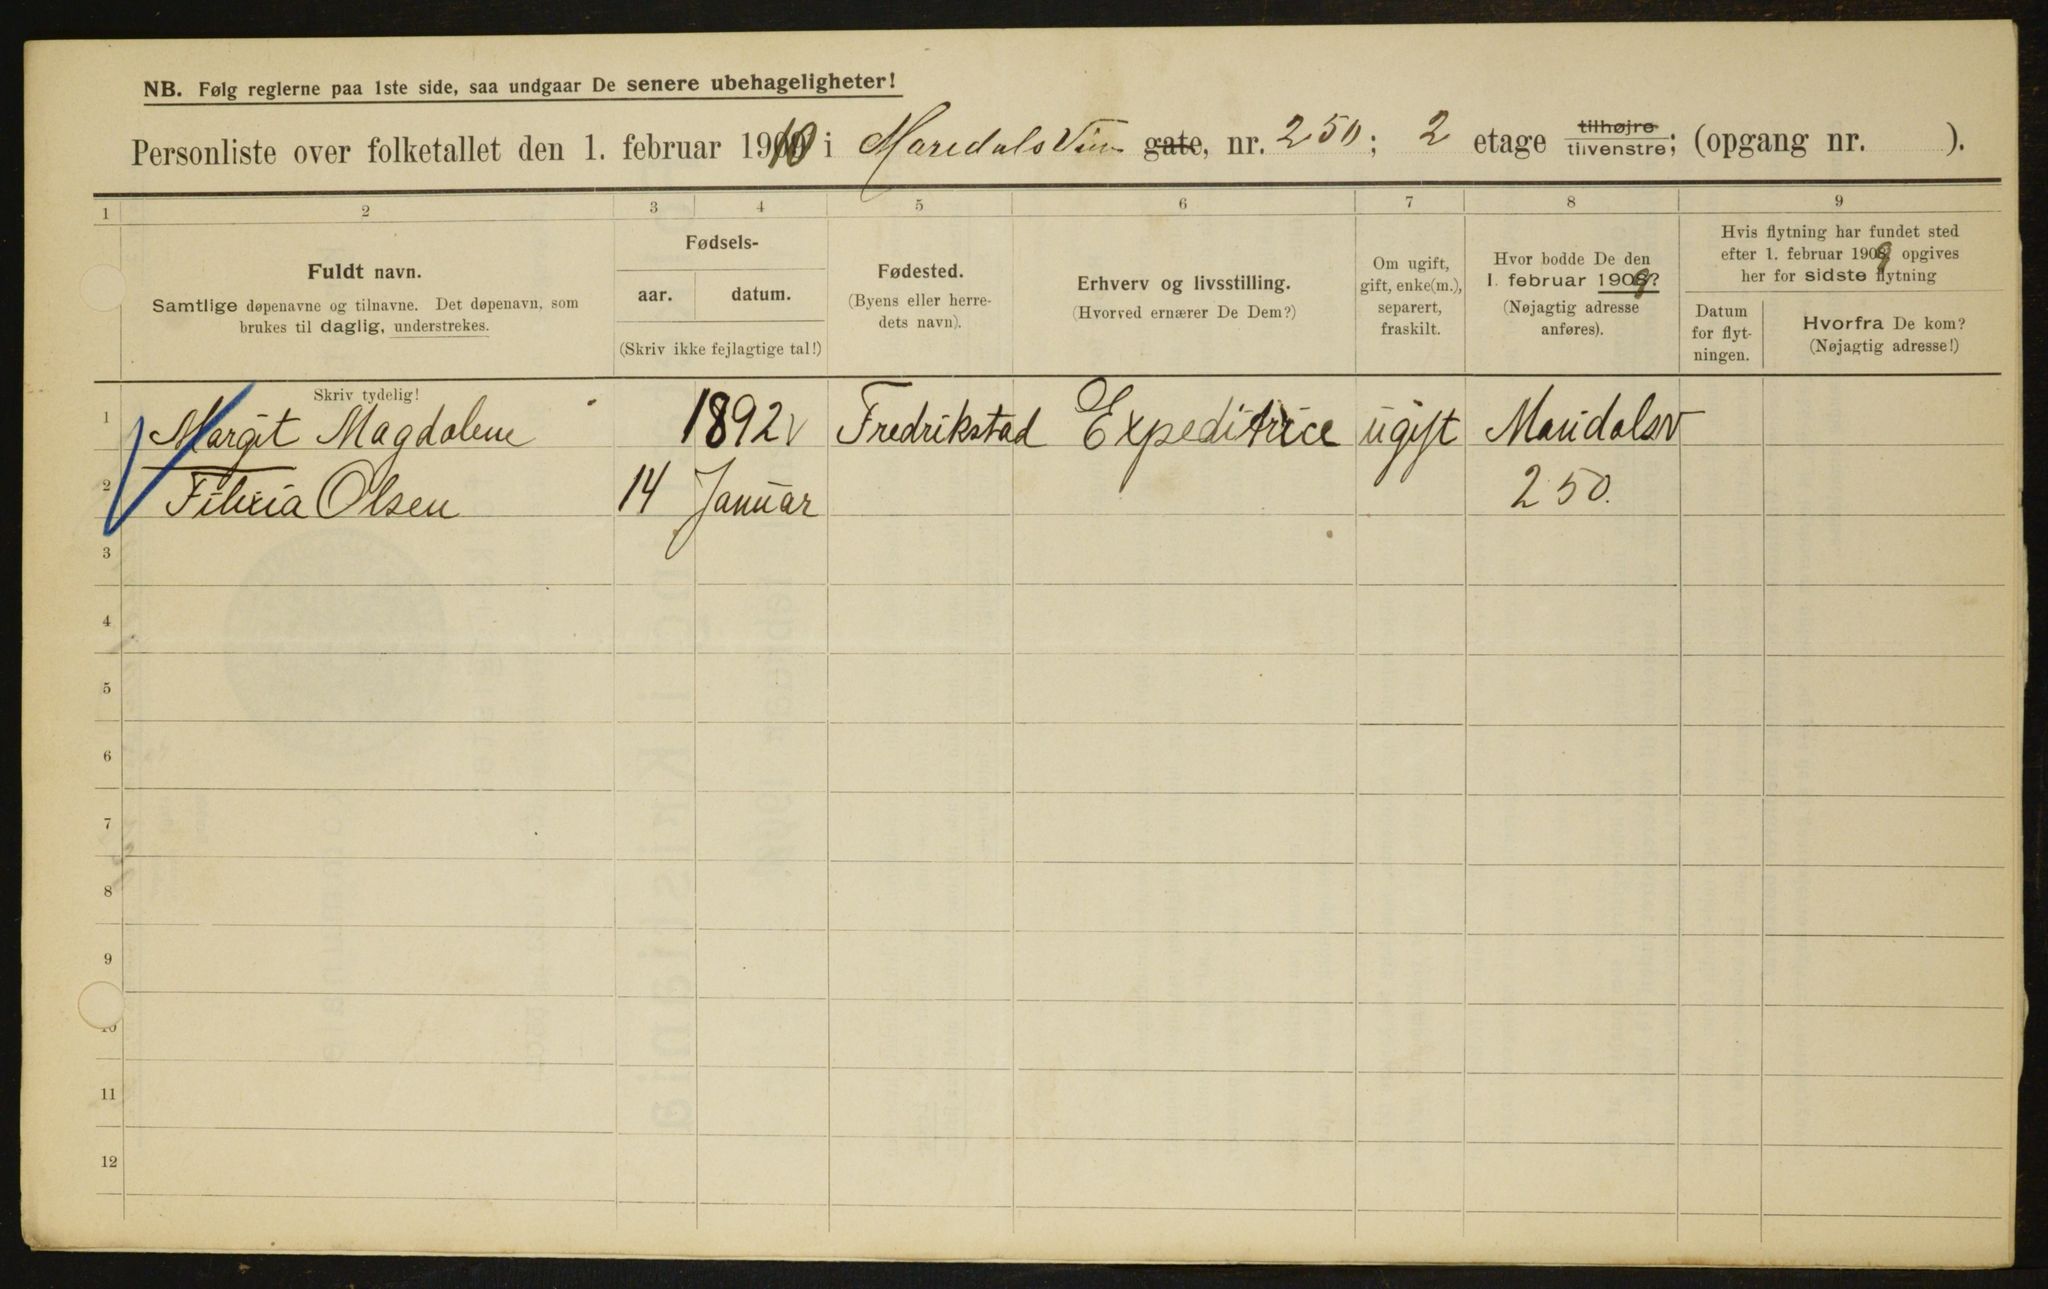 NB. Følg reglerne paa 1ste side, saa undgaar De senere ubehageligheter!
Personliste over folketallet den 1. februar 1910 i Maridals Veien gate, nr. 250; 2 etage tilhøjre tilvenstre; (opgang nr. ).
1 2 3 4 5 6 7 8 9
Fuldt navn.
Samtlige døpenavne og tilnavne. Det døpenavn, som
brukes til daglig, understrekes.
Fødsels-
aar. datum.
(Skriv ikke fejlagtige tal!)
Fødested.
(Byens eller herre-
dets navn).
Erhverv og livsstilling.
(Hvorved ernærer De Dem?)
Om ugift,
gift, enke(m.),
separert,
fraskilt.
Hvor bodde De den
1. februar 1909?
(Nøjagtig adresse
anføres).
Hvis flytning har fundet sted
efter 1. februar 1909 opgives
her for sidste flytning
Datum
for flyt-
ningen.
Hvorfra De kom?
(Nøjagtig adresse!)
Skriv tydelig!
1 Margit Magdalene 1892 Fredrikstad Expeditrice ugift Maridalsv
2 Olsen 14 Januar 250.
3
4
5
6
7
8
9
10
11
12